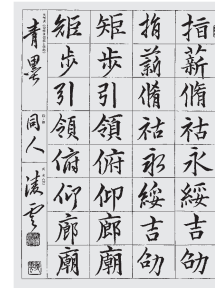 指薪脩祜永綏吉劭
指薪脩祜永綏吉劭
矩步引領俯仰廊廟
矩步引領俯仰廊廟
青墨 同人 凌雲